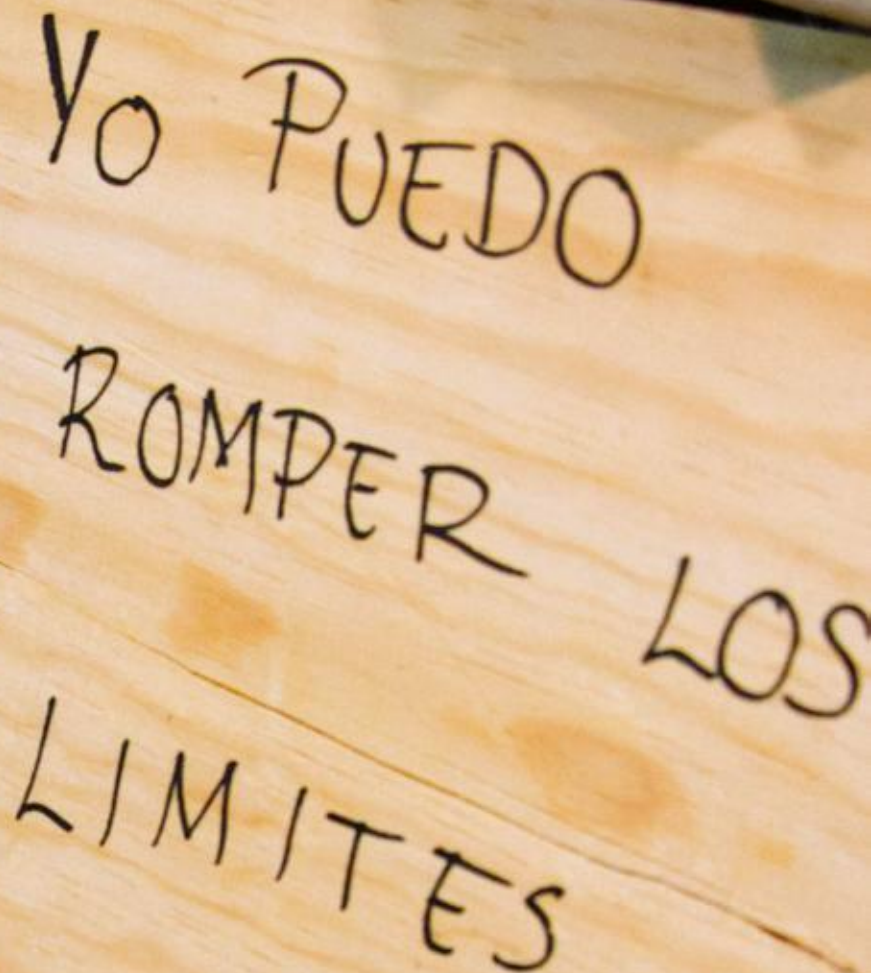 Yo PUEDO
ROMPER LOS
LIMITES